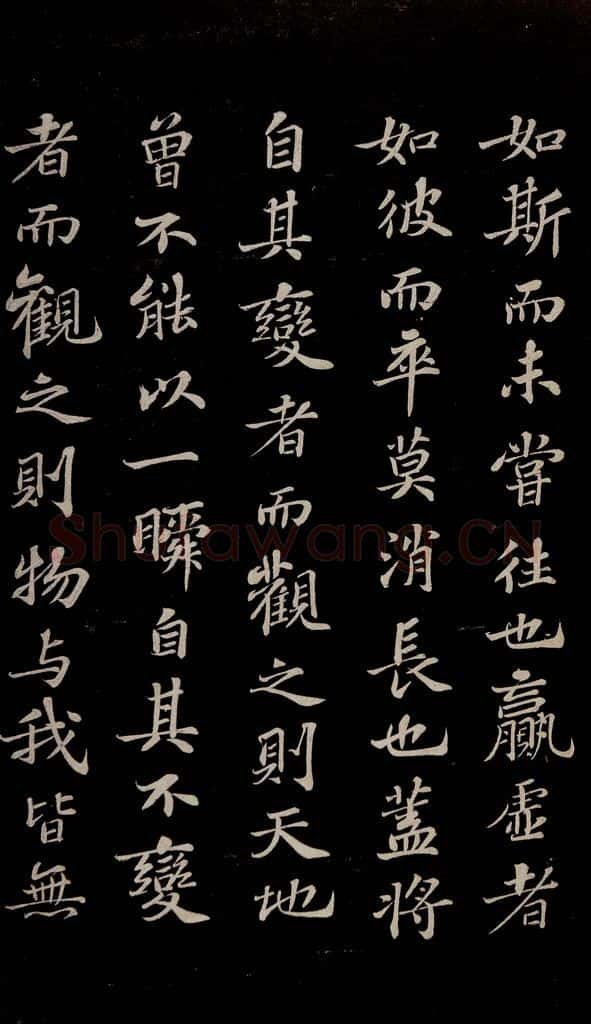 如斯而未嘗往也贏虛者
如彼而卒莫消長也蓋將
自其變者而觀之則天地
曾不能以一瞬自其不變
者而觀之則物与我皆無
Shufawang.CN